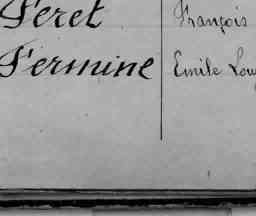 Feret François
Fermine Emile Lou